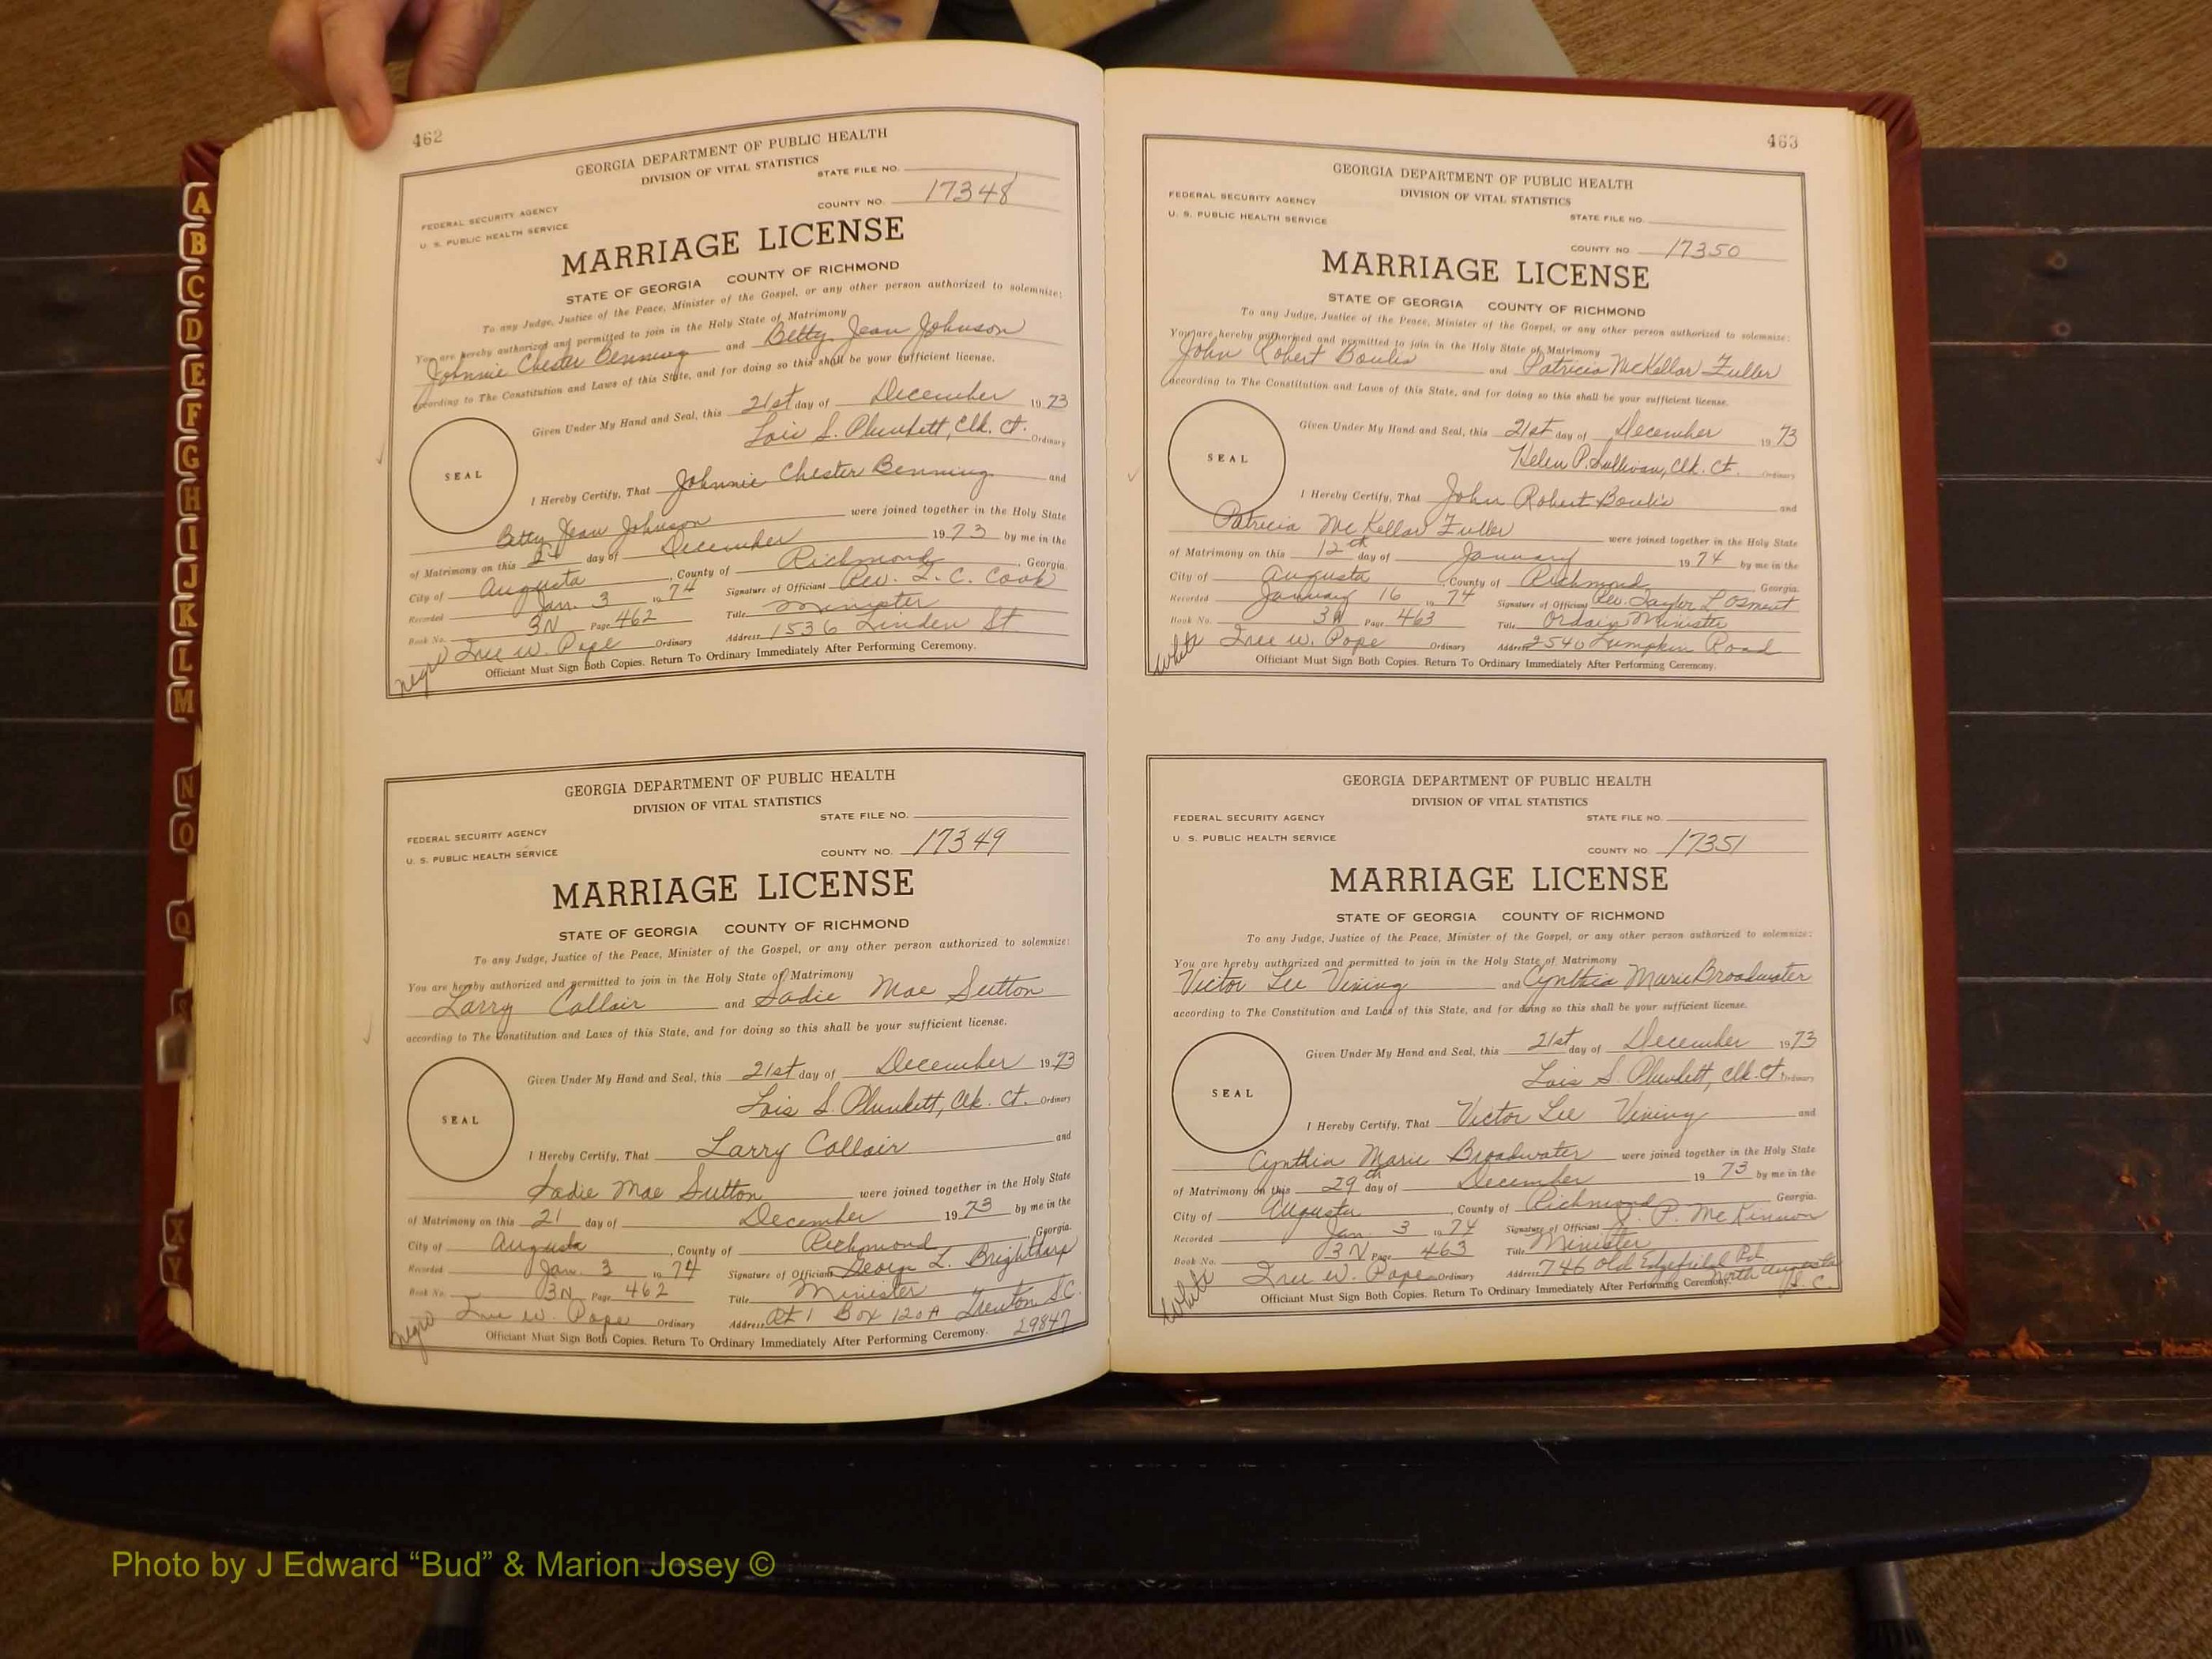 A
B
C
D
E
F
G
H
I
J
K
L
M
N
O
Q
S
X
Y
462
GEORGIA DEPARTMENT OF PUBLIC HEALTH
DIVISION OF VITAL STATISTICS
STATE FILE NO.
FEDERAL SECURITY AGENCY
U. S. PUBLIC HEALTH SERVICE
COUNTY NO. 17348
MARRIAGE LICENSE
STATE OF GEORGIA COUNTY OF RICHMOND
To any Judge, Justice of the Peace, Minister of the Gospel, or any other person authorized to solemnize:
You are hereby authorized and permitted to join in the Holy State of Matrimony
Johnnie Chester Benning and Betty Jean Johnson
according to The Constitution and Laws of this State, and for doing so this shall be your sufficient license.
Given Under My Hand and Seal, this 21st day of December 1973
Lois S. Plunkett, Clk. Ct. Ordinary
SEAL
I Hereby Certify, That Johnnie Chester Benning and
Betty Jean Johnson were joined together in the Holy State
of Matrimony on this day of December 1973 by me in the
City of Augusta, County of Richmond, Georgia.
Recorded Jan. 3 1974 Signature of Officiant Rev. L. C. Cook
Book No. 3N Page 462 Title Minister
Ordinary Address 1536 Linden St
W. Pope
negro
Officiant Must Sign Both Copies. Return To Ordinary Immediately After Performing Ceremony.
GEORGIA DEPARTMENT OF PUBLIC HEALTH
DIVISION OF VITAL STATISTICS
STATE FILE NO.
FEDERAL SECURITY AGENCY
U. S. PUBLIC HEALTH SERVICE
COUNTY NO. 17349
MARRIAGE LICENSE
STATE OF GEORGIA COUNTY OF RICHMOND
To any Judge, Justice of the Peace, Minister of the Gospel, or any other person authorized to solemnize:
You are hereby authorized and permitted to join in the Holy State of Matrimony
Larry Collair and Sadie Mae Sutton
according to The Constitution and Laws of this State, and for doing so this shall be your sufficient license.
Given Under My Hand and Seal, this 21st day of December 1973
Lois S. Plunkett, Clk. Ct. Ordinary
SEAL
I Hereby Certify, That Larry Collair and
Sadie Mae Sutton were joined together in the Holy State
of Matrimony on this 21 day of December 1973 by me in the
City of Augusta, County of Richmond, Georgia.
Recorded Jan. 3 1974 Signature of Officiant George L. Brightharp
Book No. 3N Page 462 Title Minister
W. Pope Ordinary Address Rt 1 Box 120A Trenton S.C.
29847
negro
Officiant Must Sign Both Copies. Return To Ordinary Immediately After Performing Ceremony.
463
GEORGIA DEPARTMENT OF PUBLIC HEALTH
DIVISION OF VITAL STATISTICS
FEDERAL SECURITY AGENCY
U. S. PUBLIC HEALTH SERVICE
STATE FILE NO.
COUNTY NO 17350
MARRIAGE LICENSE
STATE OF GEORGIA COUNTY OF RICHMOND
To any Judge, Justice of the Peace, Minister of the Gospel, or any other person authorized to solemnize:
You are hereby authorized and permitted to join in the Holy State of Matrimony
John Robert Boulis and Patricia McKellar Fuller
according to The Constitution and Laws of this State, and for doing so this shall be your sufficient license.
Given Under My Hand and Seal, this 21st day of December 1973
Helen P. Sullivan, Clk. Ct. Ordinary
SEAL
I Hereby Certify, That John Robert Boulis and
Patricia McKellar Fuller were joined together in the Holy State
of Matrimony on this 12th day of January 1974 by me in the
City of Augusta, County of Richmond, Georgia.
Recorded January 16 1974 Signature of Officiant Rev. Taylor L Osment
Book No. 3N Page 463 Title Ordain Minister
W. Pope Ordinary Address 2540 Lumpkin Road
white
Officiant Must Sign Both Copies. Return To Ordinary Immediately After Performing Ceremony.
GEORGIA DEPARTMENT OF PUBLIC HEALTH
DIVISION OF VITAL STATISTICS
FEDERAL SECURITY AGENCY
STATE FILE NO.
U. S. PUBLIC HEALTH SERVICE
COUNTY NO. 17351
MARRIAGE LICENSE
STATE OF GEORGIA COUNTY OF RICHMOND
To any Judge, Justice of the Peace, Minister of the Gospel, or any other person authorized to solemnize:
You are hereby authorized and permitted to join in the Holy State of Matrimony
Victor Lee Vining and Cynthia Marie Broadwater
according to The Constitution and Laws of this State, and for doing so this shall be your sufficient license.
Given Under My Hand and Seal, this 21st day of December 1973
Lois S. Plunkett, Clk. Ct. Ordinary
SEAL
I Hereby Certify, That Victor Lee Vining and
Cynthia Marie Broadwater were joined together in the Holy State
of Matrimony on this 29th day of December 1973 by me in the
City of Augusta, County of Richmond Georgia.
Recorded Jan 3 1974 Signature of Officiant J. P. McKinnon
Book No. 3N Page 463 Title Minister
W. Pope Ordinary Address 746 Old Edgefield Rd
North Augusta
S. C.
white
Officiant Must Sign Both Copies. Return To Ordinary Immediately After Performing Ceremony.
Photo by J Edward “Bud” & Marion Josey ©